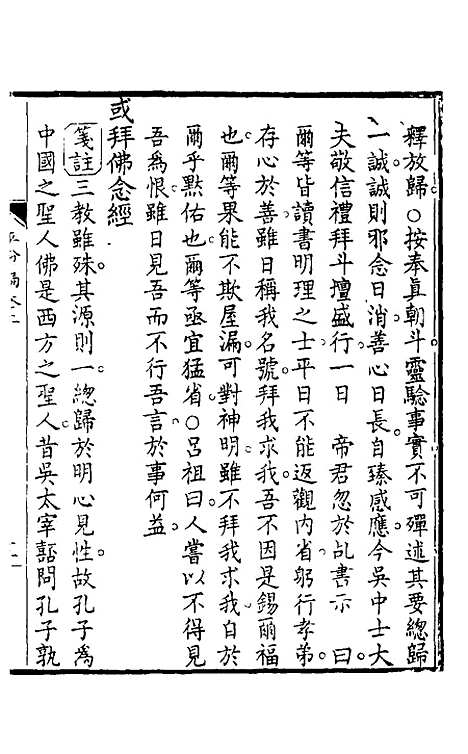 釋放歸○按奉真朝斗靈驗事實不可殫述其要總歸
一誠誠則邪念日消善心日長自臻感應今吳中士大
夫敬信禮拜斗壇盛行一日　帝君忽於乩書示　曰
爾等皆讀書明理之士平日不能返觀內省躬行孝弟
存心於善雖日稱我名號拜我求我吾不因是錫爾福
也爾等果能不欺屋漏可對神明雖不拜我求我自於
爾乎默佑也爾等亟宜猛省○呂祖曰人嘗以不得見
吾為恨雖日見吾而不行吾言於事何益
或拜佛念經
箋註三教雖殊其源則一總歸於明心見性故孔子為
中國之聖人佛是西方之聖人昔吳太宰嚭問孔子孰